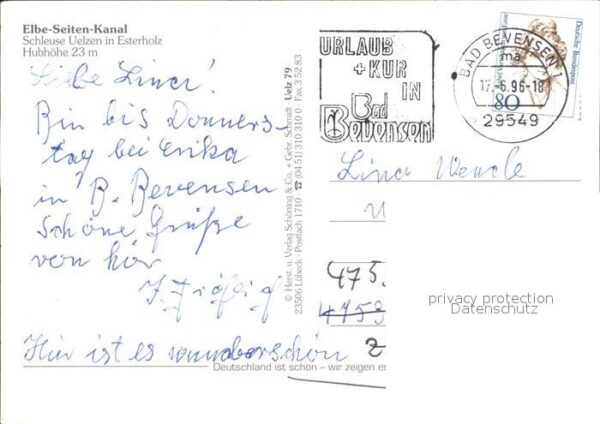 Elbe-Seiten-Kanal
Schleuse Uelzen in Esterholz
Hubhöhe 23 m
Liebe Lina!
Bin bis Donners-
tag bei Erika
in B. Bevensen
Schöne Grüße
von hier
Hier ist es wunderschön
© Herst. u. Verlag Schöning & Co. + Gebr. Schmidt Uelz 79
23506 Lübeck · Postfach 1710 · ☎ (04 51) 310 310 Fax 3 52 83
URLAUB
+ KUR
IN
Bad
Bevensen
BAD BEVENSEN 1
ma
17.-6.96-18
29549
80
Deutsche Bundespost
Lina
475.
4753
Z
privacy protection
Datenschutz
Deutschland ist schön – wir zeigen es